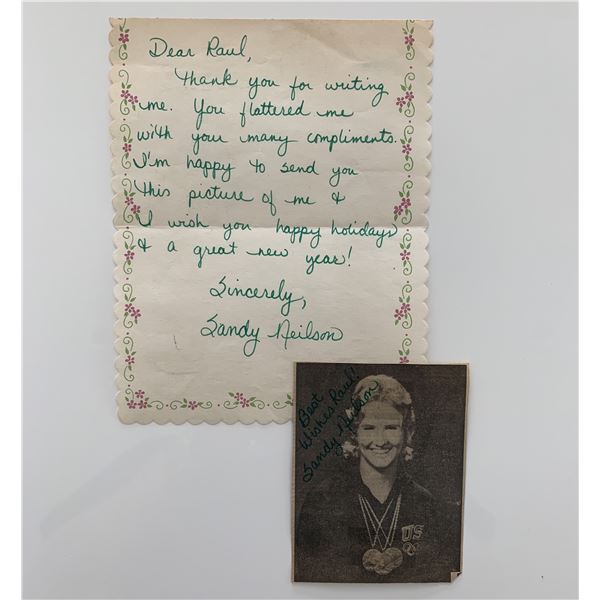 Dear Raul,
Thank you for writing
me. You flattered me
with your many compliments.
I'm happy to send you
this picture of me &
I wish you happy holidays
& a great new year!
Sincerely,
Sandy Neilson
Best
Wishes Raul!
Sandy Neilson
US